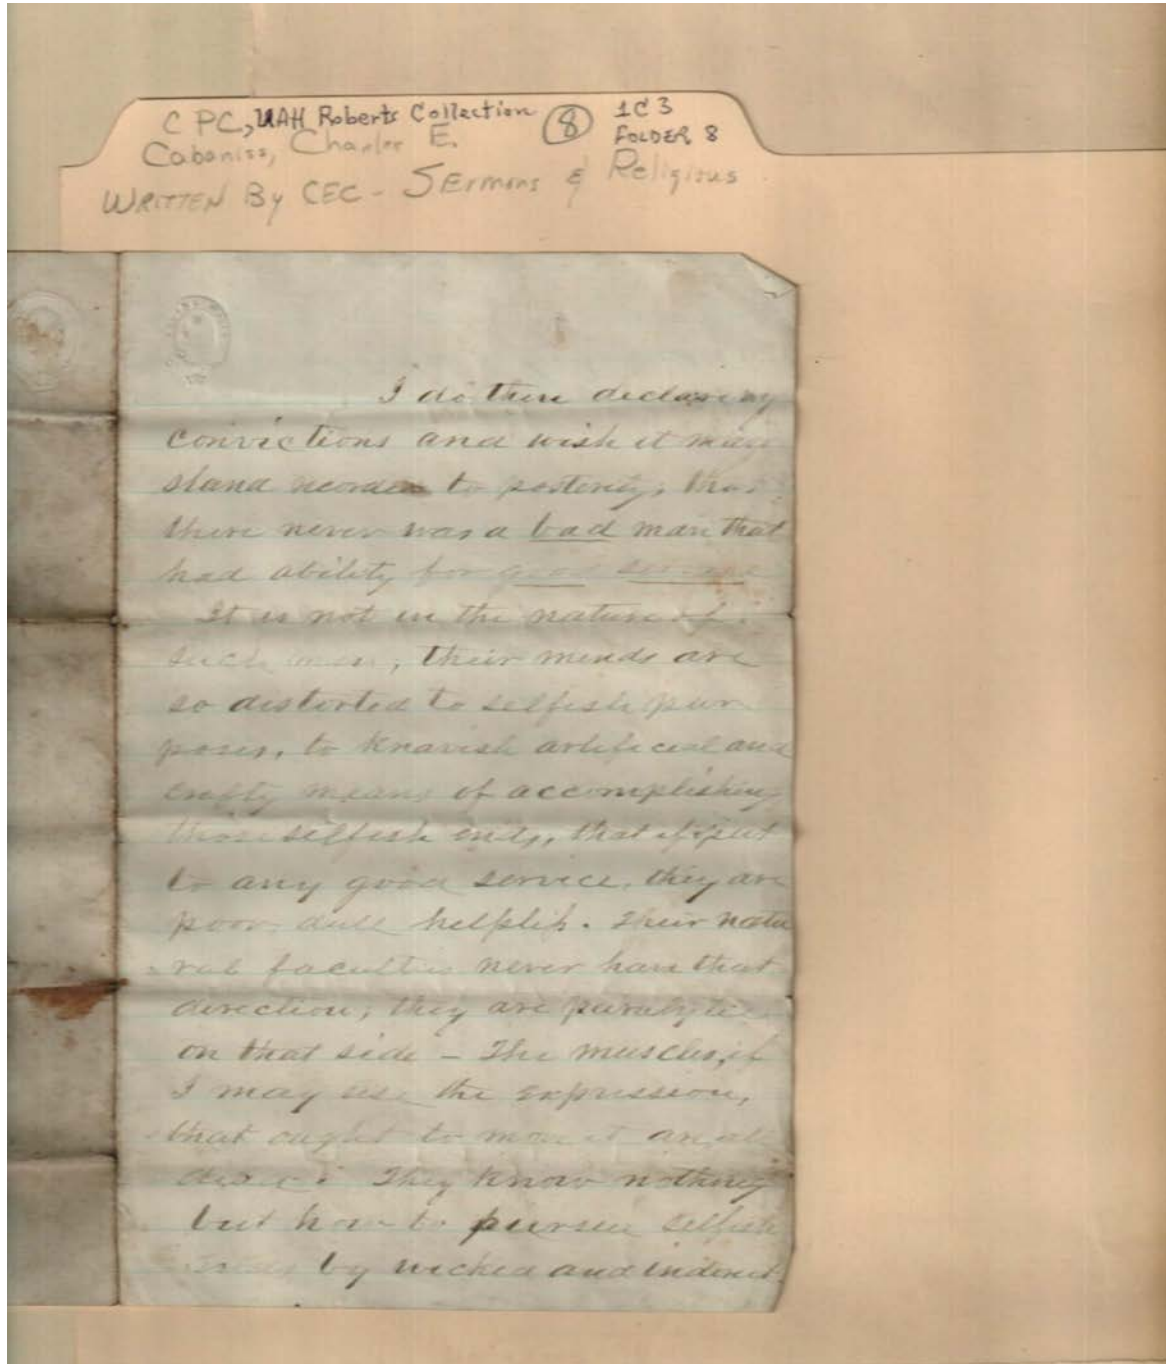 C PC, UAH Roberts Collection 8 1C3
Cabaniss, Charles E. FOLDER 8
WRITTEN By CEC - SErmons & Religious
I do then declare my
convictions and wish it may
stand recorded to posterity, that
there never was a bad man that
had ability for good service
It is not in the nature of
such men, their minds are
so distorted to selfish pur
poses, to knavish artificial and
crafty means of accomplishing
those selfish ends, that if put
to any good service, they are
poor dull helpless. Their natu
ral faculties never have that
direction; they are paralytic
on that side - The muscles, if
I may use the expression,
that ought to move it are all
dead. They know nothing
but how to pursue selfish
ends by wicked and indirect